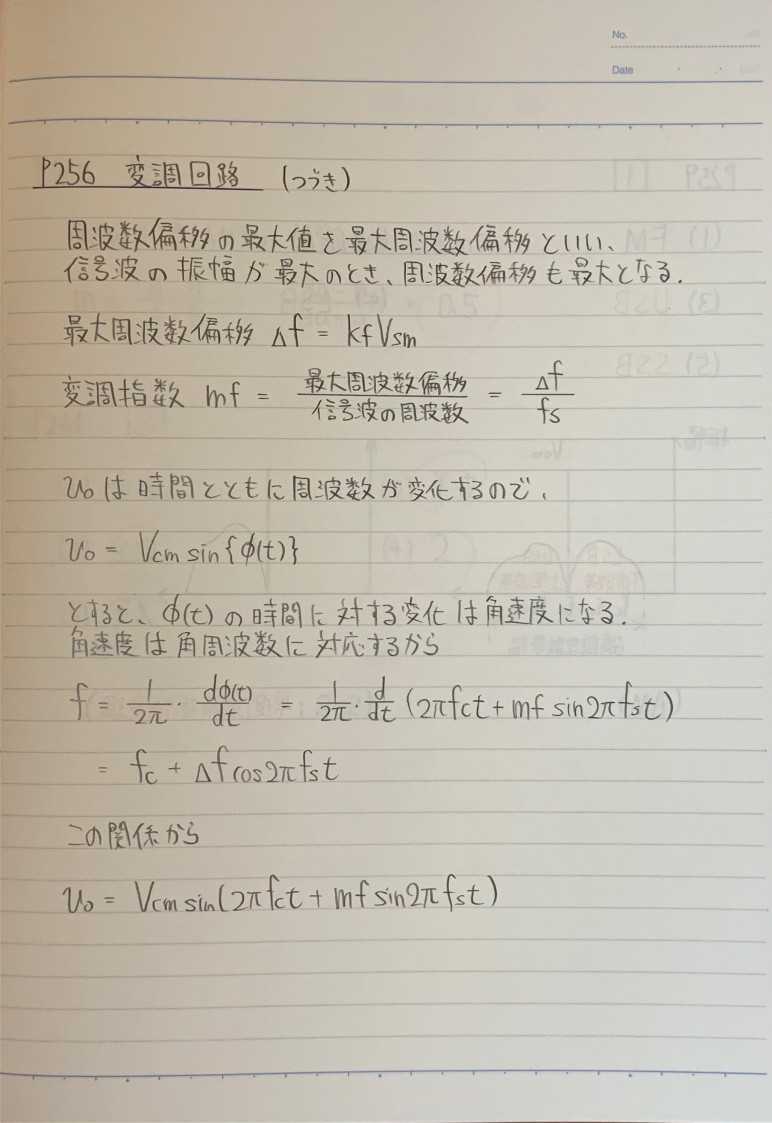 No.
Date
P256 変調回路 (つづき)
周波数偏移の最大値を最大周波数偏移といい、
信号波の振幅が最大のとき、周波数偏移も最大となる.
最大周波数偏移 Δf = kfVsm
変調指数 mf = 最大周波数偏移/信号波の周波数 = Δf/fs
υoは時間とともに周波数が変化するので、
υo = Vcm sin{φ(t)}
とすると、φ(t)の時間に対する変化は角速度になる.
角速度は角周波数に対応するから
f = 1/2π · dφ(t)/dt = 1/2π · d/dt (2πfct + mf sin2πfst)
= fc + Δf cos2πfst
この関係から
υo = Vcm sin(2πfct + mf sin2πfst)